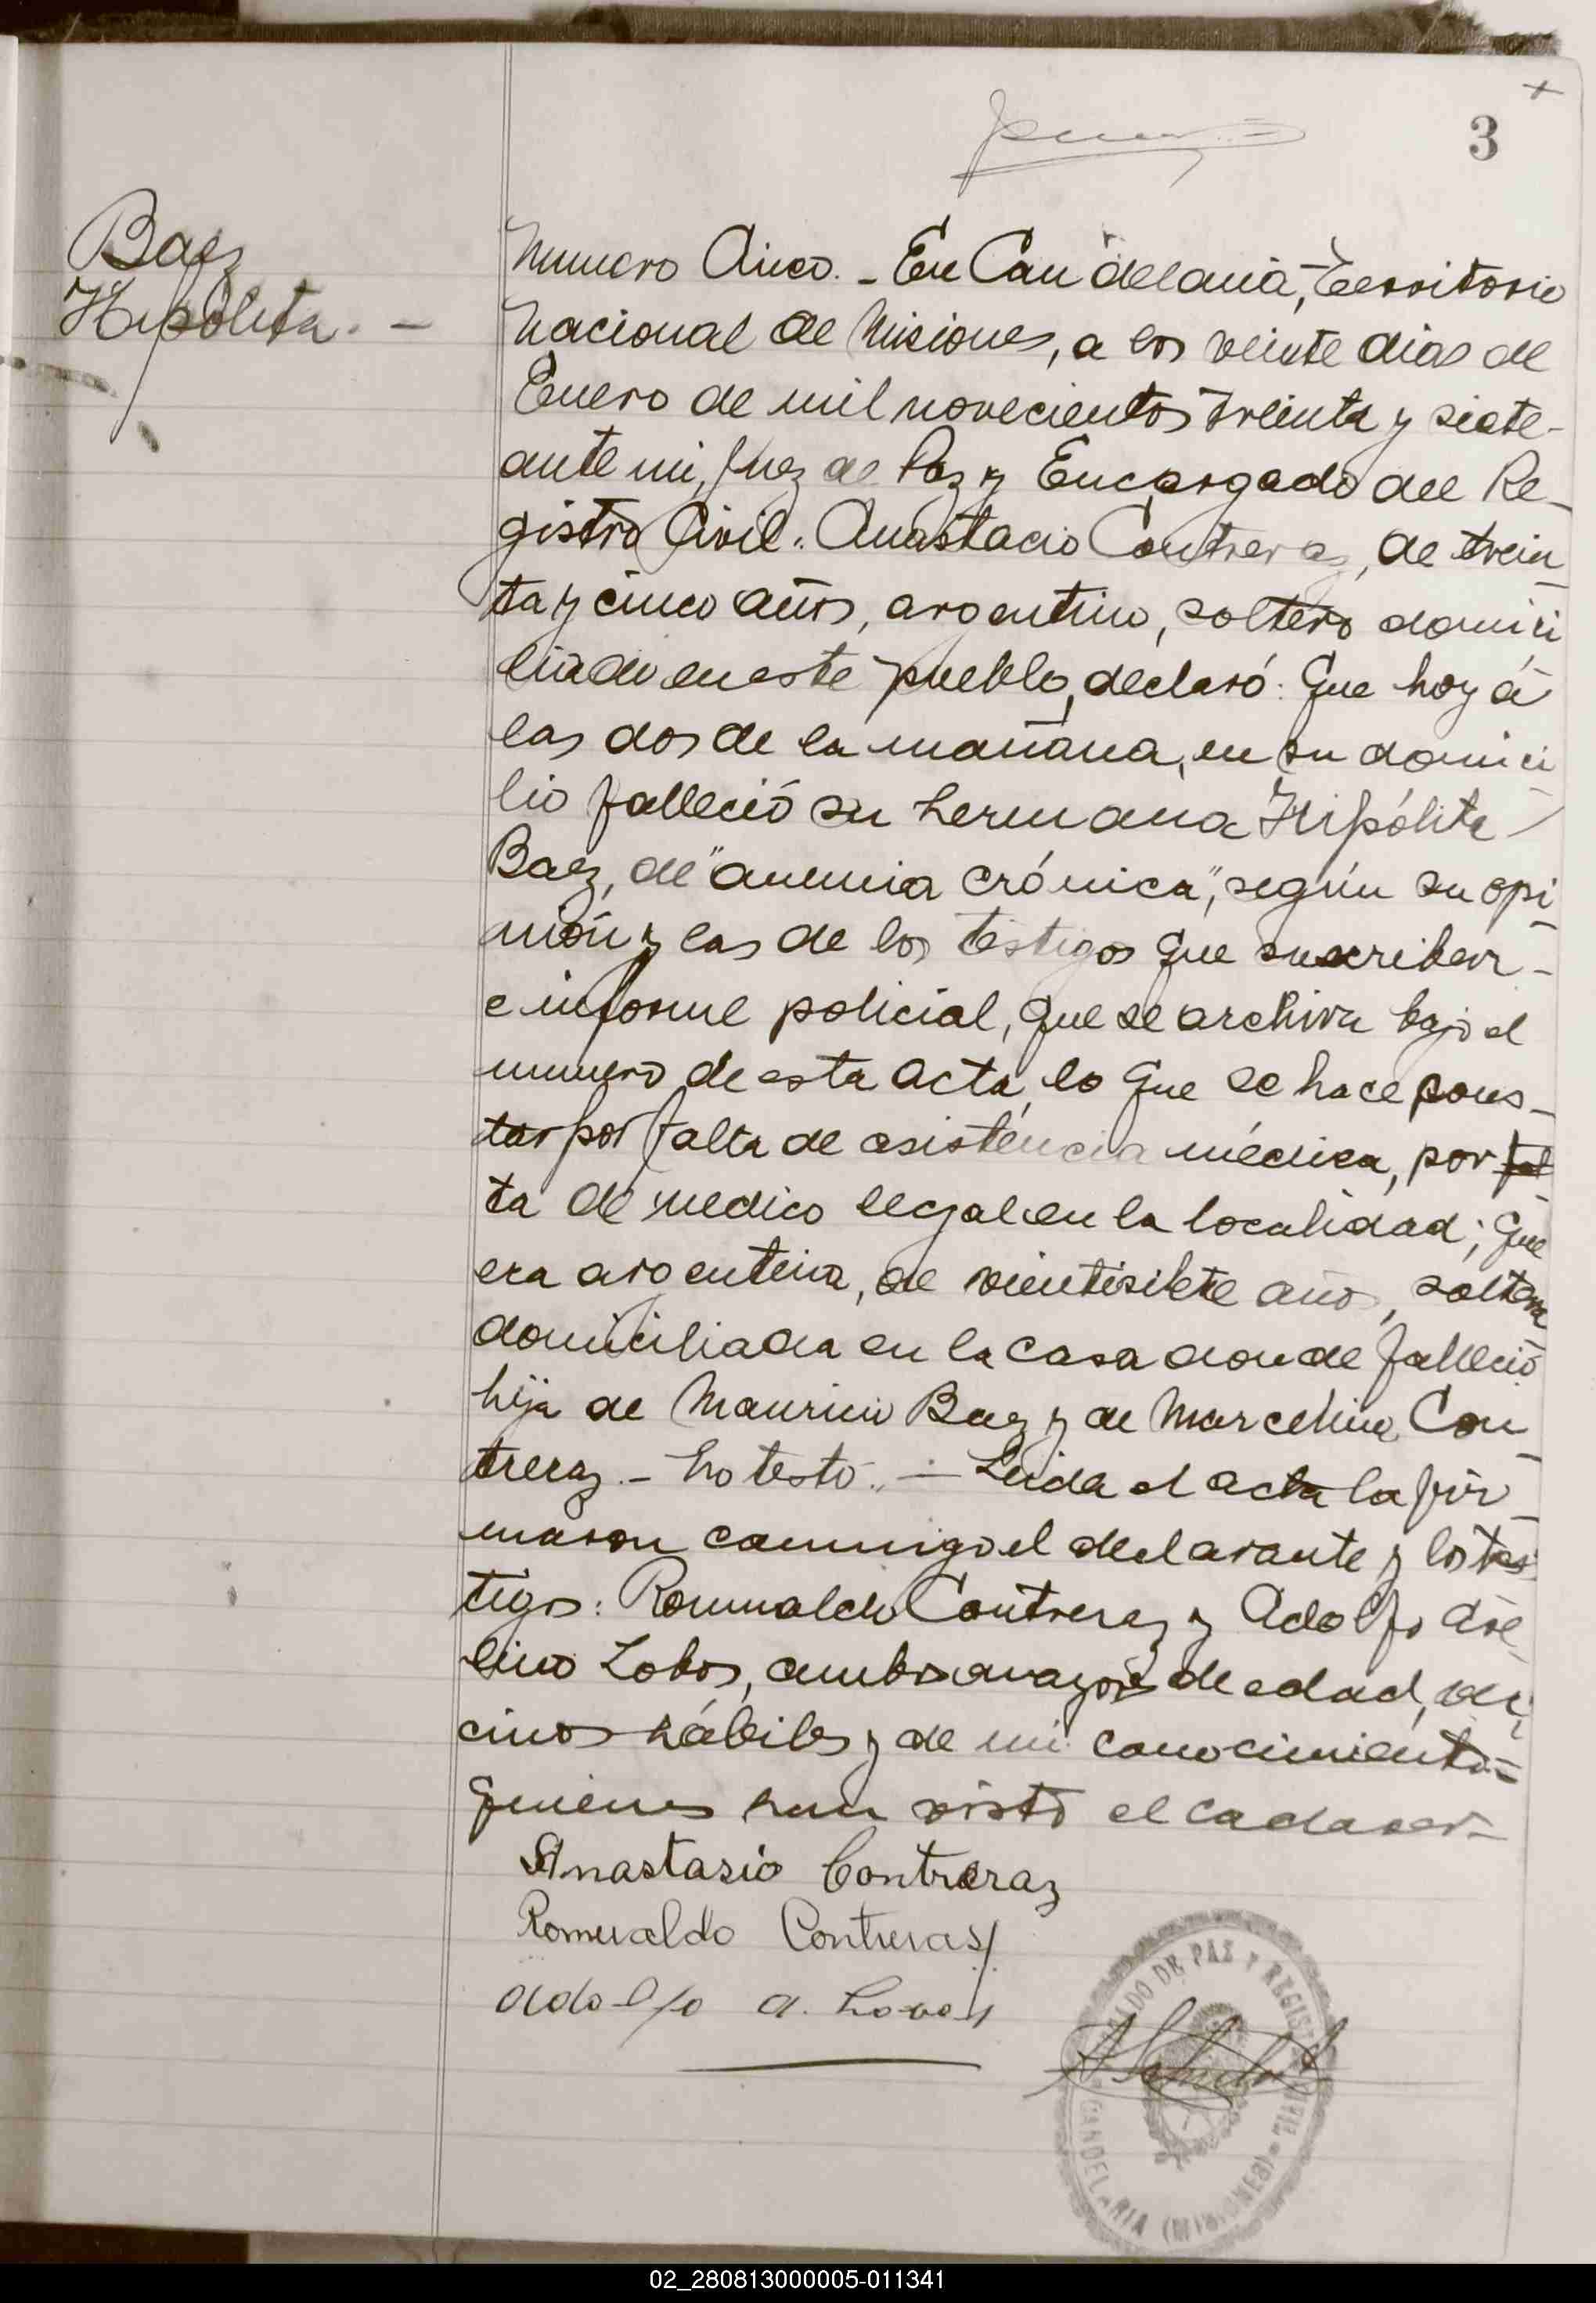 3
Baez
Hipólita. —
Numero Cinco. - En Candelaria, Territorio
Nacional de Misiones, a los veinte dias de
Enero de mil novecientos treinta y siete-
ante mi, Juez de Paz y Encargado del Re-
gistro Civil: Anastacio Contreraz, de trein
ta y cinco años, argentino, soltero domici
liado en este pueblo, declaró: Que hoy á
las dos de la mañana, en su domici
lio falleció su hermana Hipólita
Baez, de "anemia crónica", según su opi
nión y las de los testigos que suscriben-
e informe policial, que se archiva bajo el
numero de esta acta, lo que se hace cons-
tar por falta de asistencia médica, por fal-
ta de medico legal en la localidad; que
era argentina, de vientisiete años, soltera
domiciliada en la casa donde falleció
hija de Mauricio Baez y de Marcelina Con
treraz. - No testó. - Leida el acta la fir
maron conmigo el declarante y los tes
tigos: Romualdo Contreraz y Adolfo Ave
lino Lobos, ambos mayores de edad, ve
cinos hábiles y de mi conocimiento-
quienes han visto el cadaver-
Anastasio Contreraz
Romualdo Contreras
Adolfo A. Lovos
JUZGADO DE PAZ Y REGISTRO CIVIL
CANDELARIA (MISIONES)
02_280813000005-011341